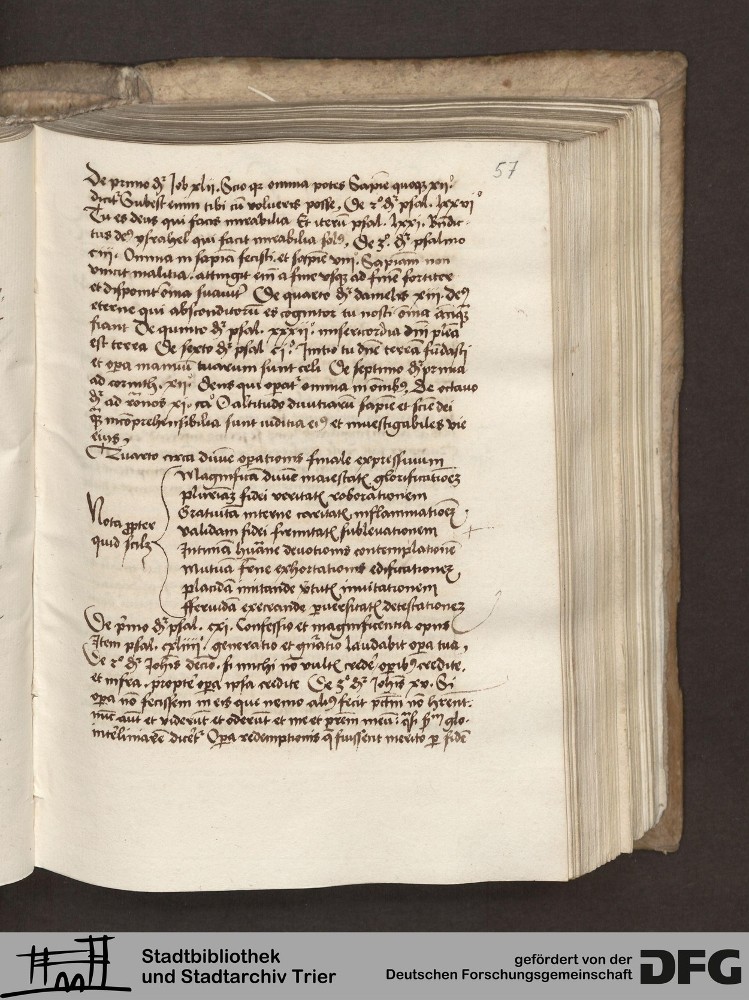 57
De primo dr Job xlii. Scio qr omnia potes Sapie quoqz xii°
dicit Subest enim tibi cu volueris posse. De 2° dr psal. lxxvi°
Tu es deus qui facis mirabilia Et iteru psal. lxxi. Bndic-
tus de9 ysrahel qui facit mirabilia sol9. De 3°. dr psalmo
ciii. Omnia in sapia fecisti. et sapie viii. Sapiam non
vincit malitia. attingit em a fine vsqz ad fine fortiter
et disponit oia suauit De quarto dr danielis xiii. de9
eterne qui absconditoru es cognitor tu nosti oia anqz
fiant De quinto dr psal. xxxii°. misericordia dni plea
est terra De sexto dr psal ci°. Initio tu dne terra fudasti
et opa manuu tuarum sunt celi De septimo dr prima
ad corinth. xii° Deus qui opat omnia in oib9. De octauo
dr ad roanos xi. ca° O altitudo diuitiaru sapie et scie dei
q incoprehensibilia sunt iuditia ei9 et inuestigabiles vie
eius.
Quarto circa diuie operationis finale expressiuum
Magnifica diuie maiestatis glorificatioez
pluriaz fidei veritatis roborationem
Gratuita interne caritatis inflammatioez.
Nota propter
quid scilz
validam fidei firmitatis subleuationem
Intima huane deuotionis contemplatione
mutua frne exhortationis edificationez
placida imitande vtutis inuitationem
fferuida execrande puersitatis detestationez
De pmo dr psal. cxi. Confessio et magnificentia opus
Item psal. cxliiii°. generatio et gnatio laudabit opa tua,
De 2° dr Johis decio. si michi no vultis crede opib9 credite.
et infra. propter opa ipsa credite De 3° dr Johis xv. Si
opa no fecissem in eis que nemo ali9 fecit pctm no hrent.
nuc aut et viderut et oderut et me et prem meu. glo-
interliniare dicet Opa redemptionis q fuissent merito p fide
Stadtbibliothek
und Stadtarchiv Trier
gefördert von der
Deutschen Forschungsgemeinschaft
DFG